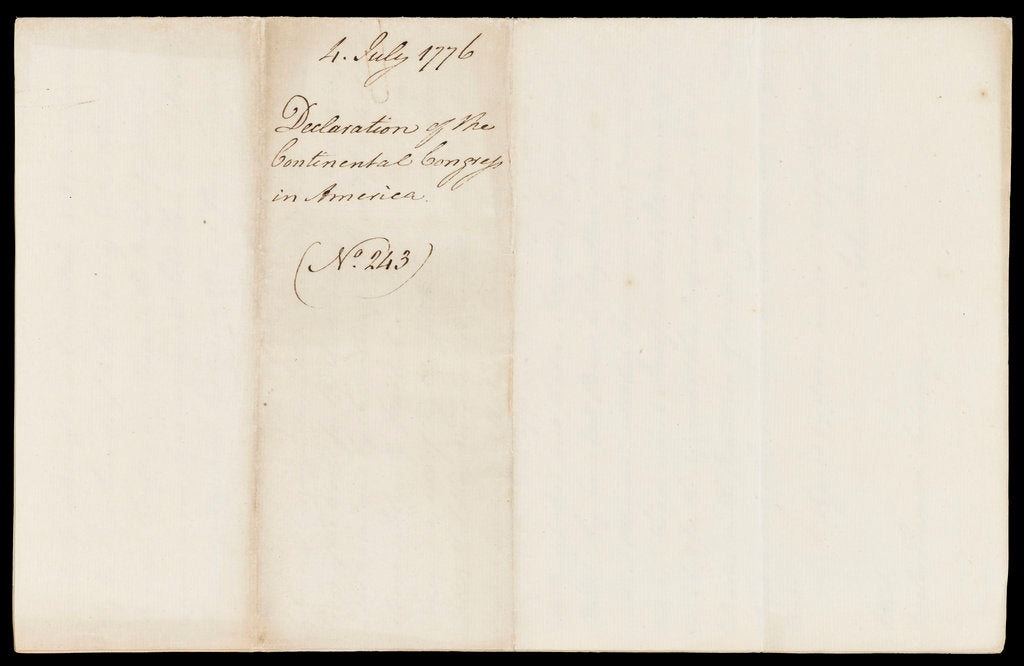 4. July 1776
Declaration of the
Continental Congress
in America.
(No. 243)